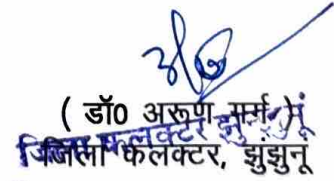 ( डॉ0 अरूण गर्ग )
जिला कलक्टर झुंझुनूं
जिला कलक्टर, झुंझुनू